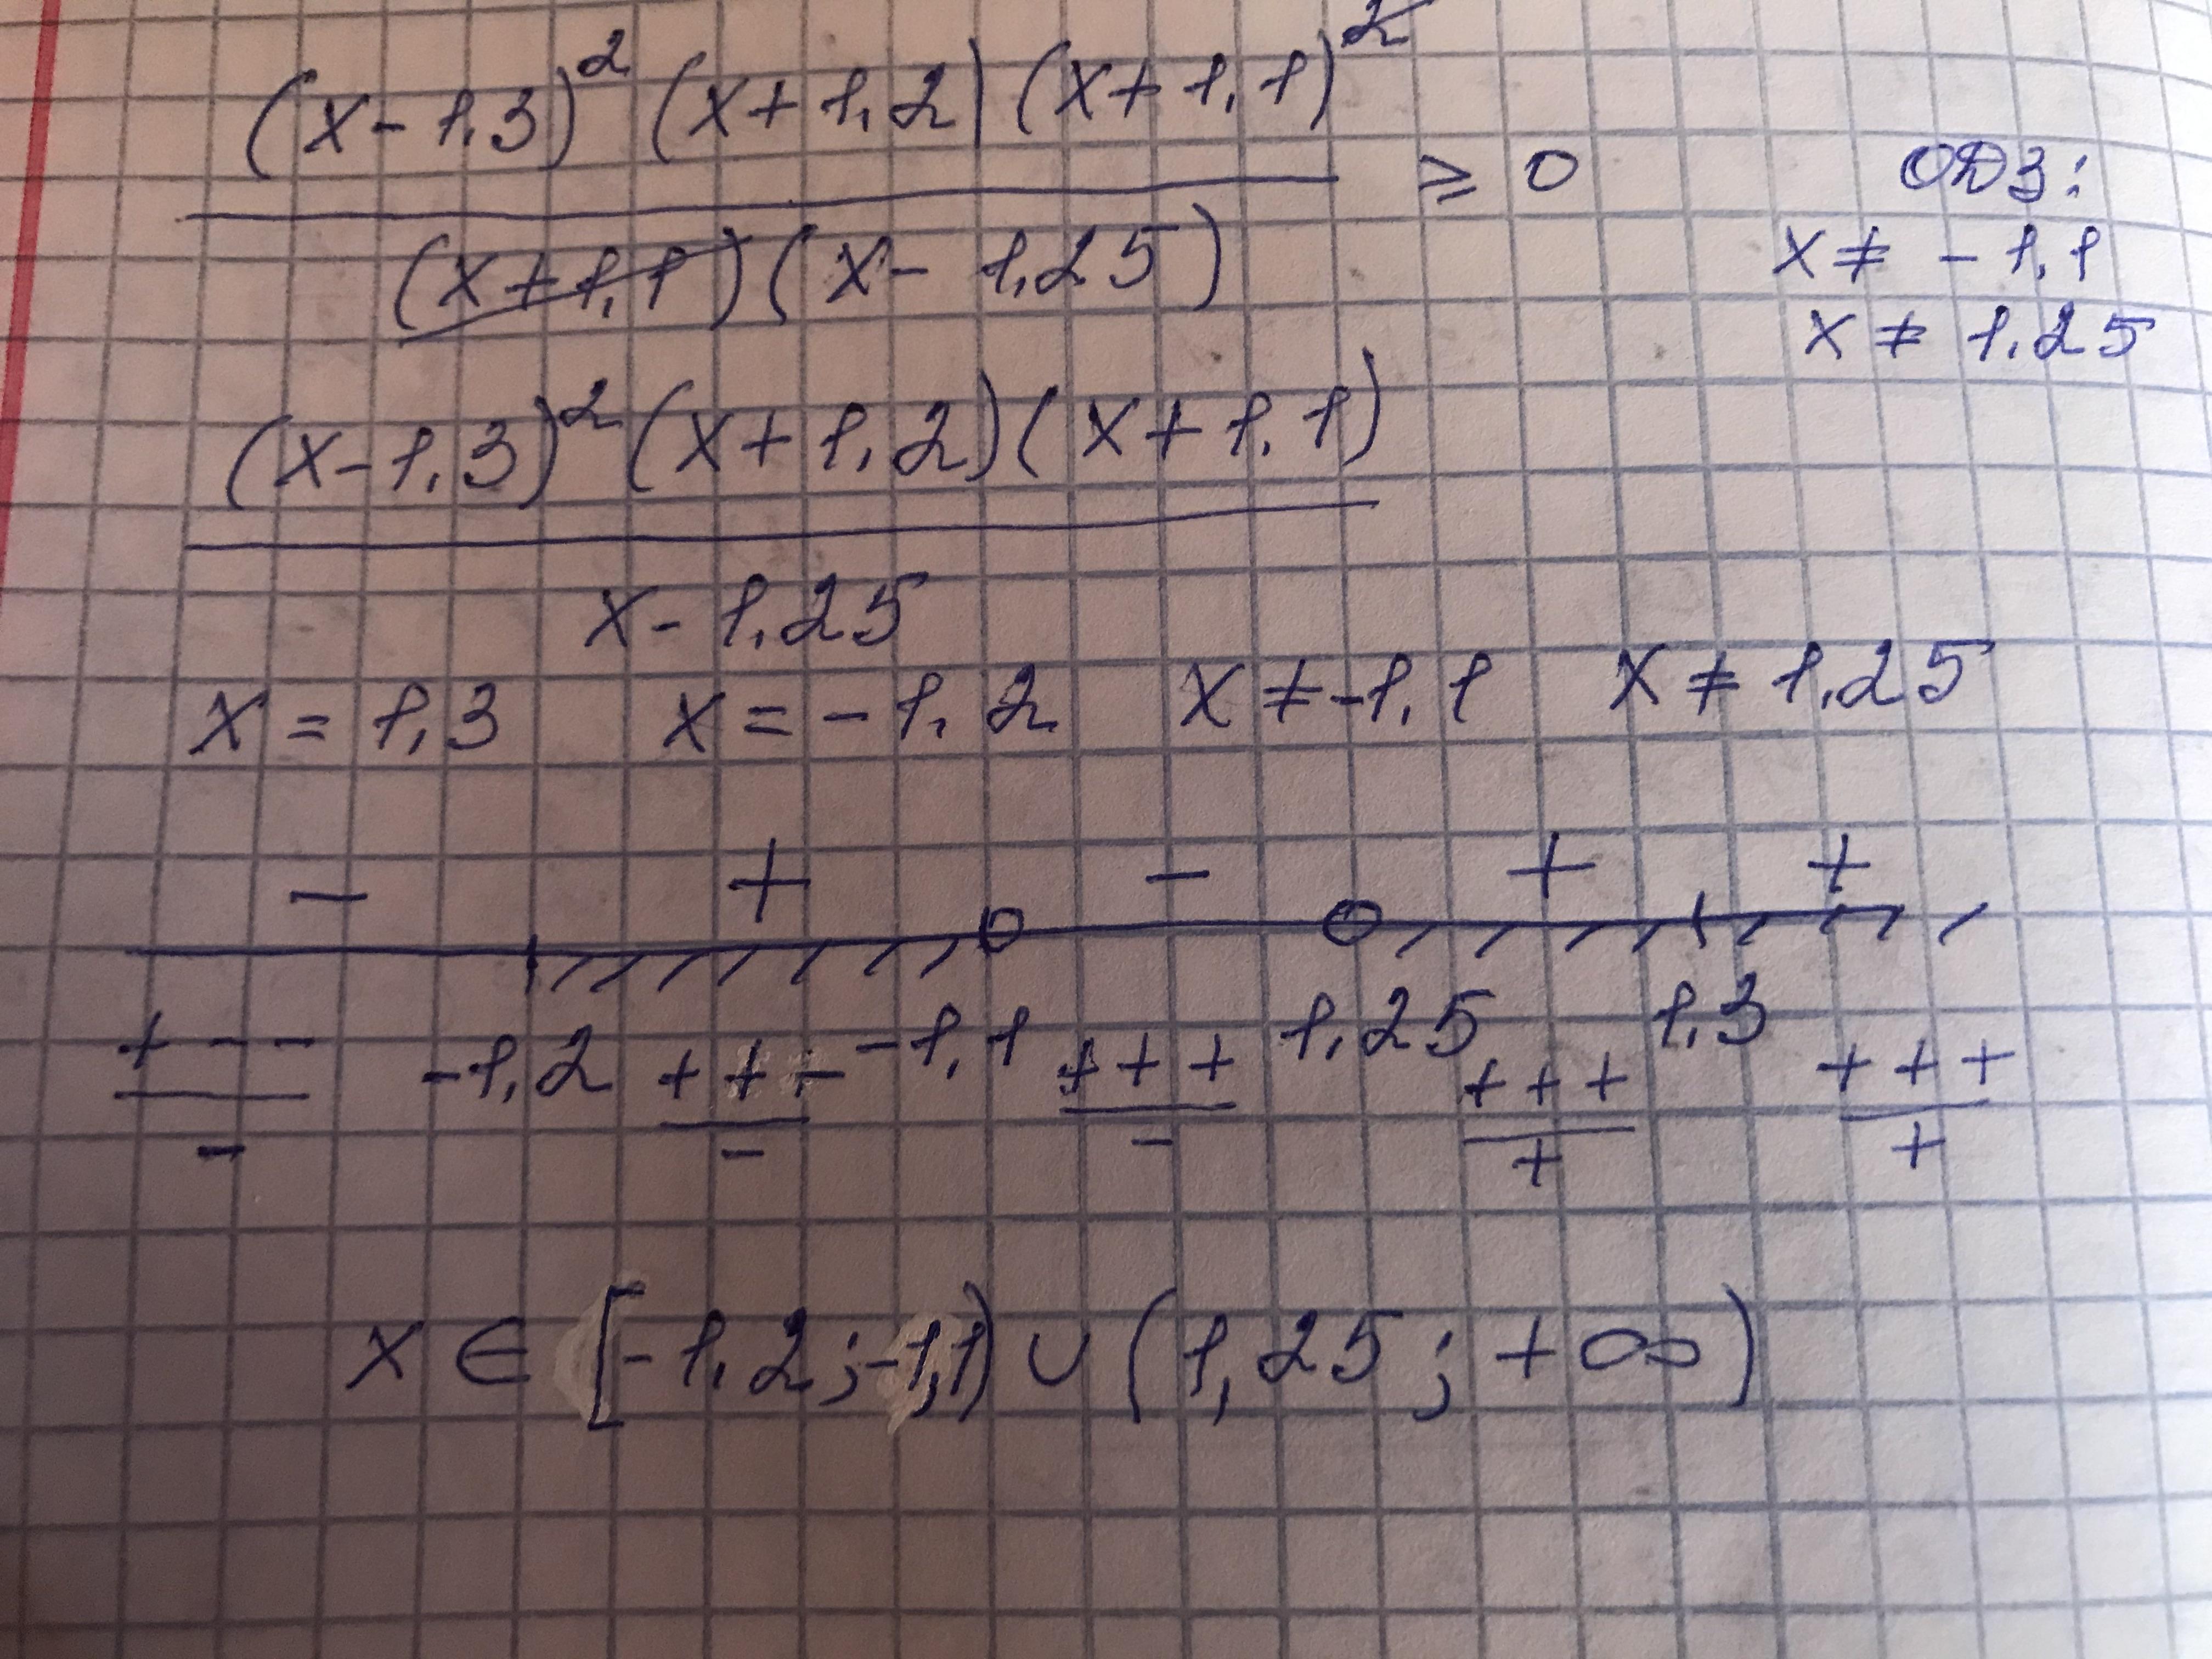 (x-1,3)² (x+1,2) (x+1,1)²
≥ 0
ОДЗ:
(x+1,1)(x-1,25)
x ≠ -1,1
x ≠ 1,25
(x-1,3)² (x+1,2) (x+1,1)
x-1,25
x = 1,3 x = -1,2 x ≠ -1,1 x ≠ 1,25
- + - + +
-1,2 -1,1 1,25 1,3
+ - - + + - + + + + + + + + +
- - - + +
x ∈ [-1,2; -1,1) ∪ (1,25; +∞)